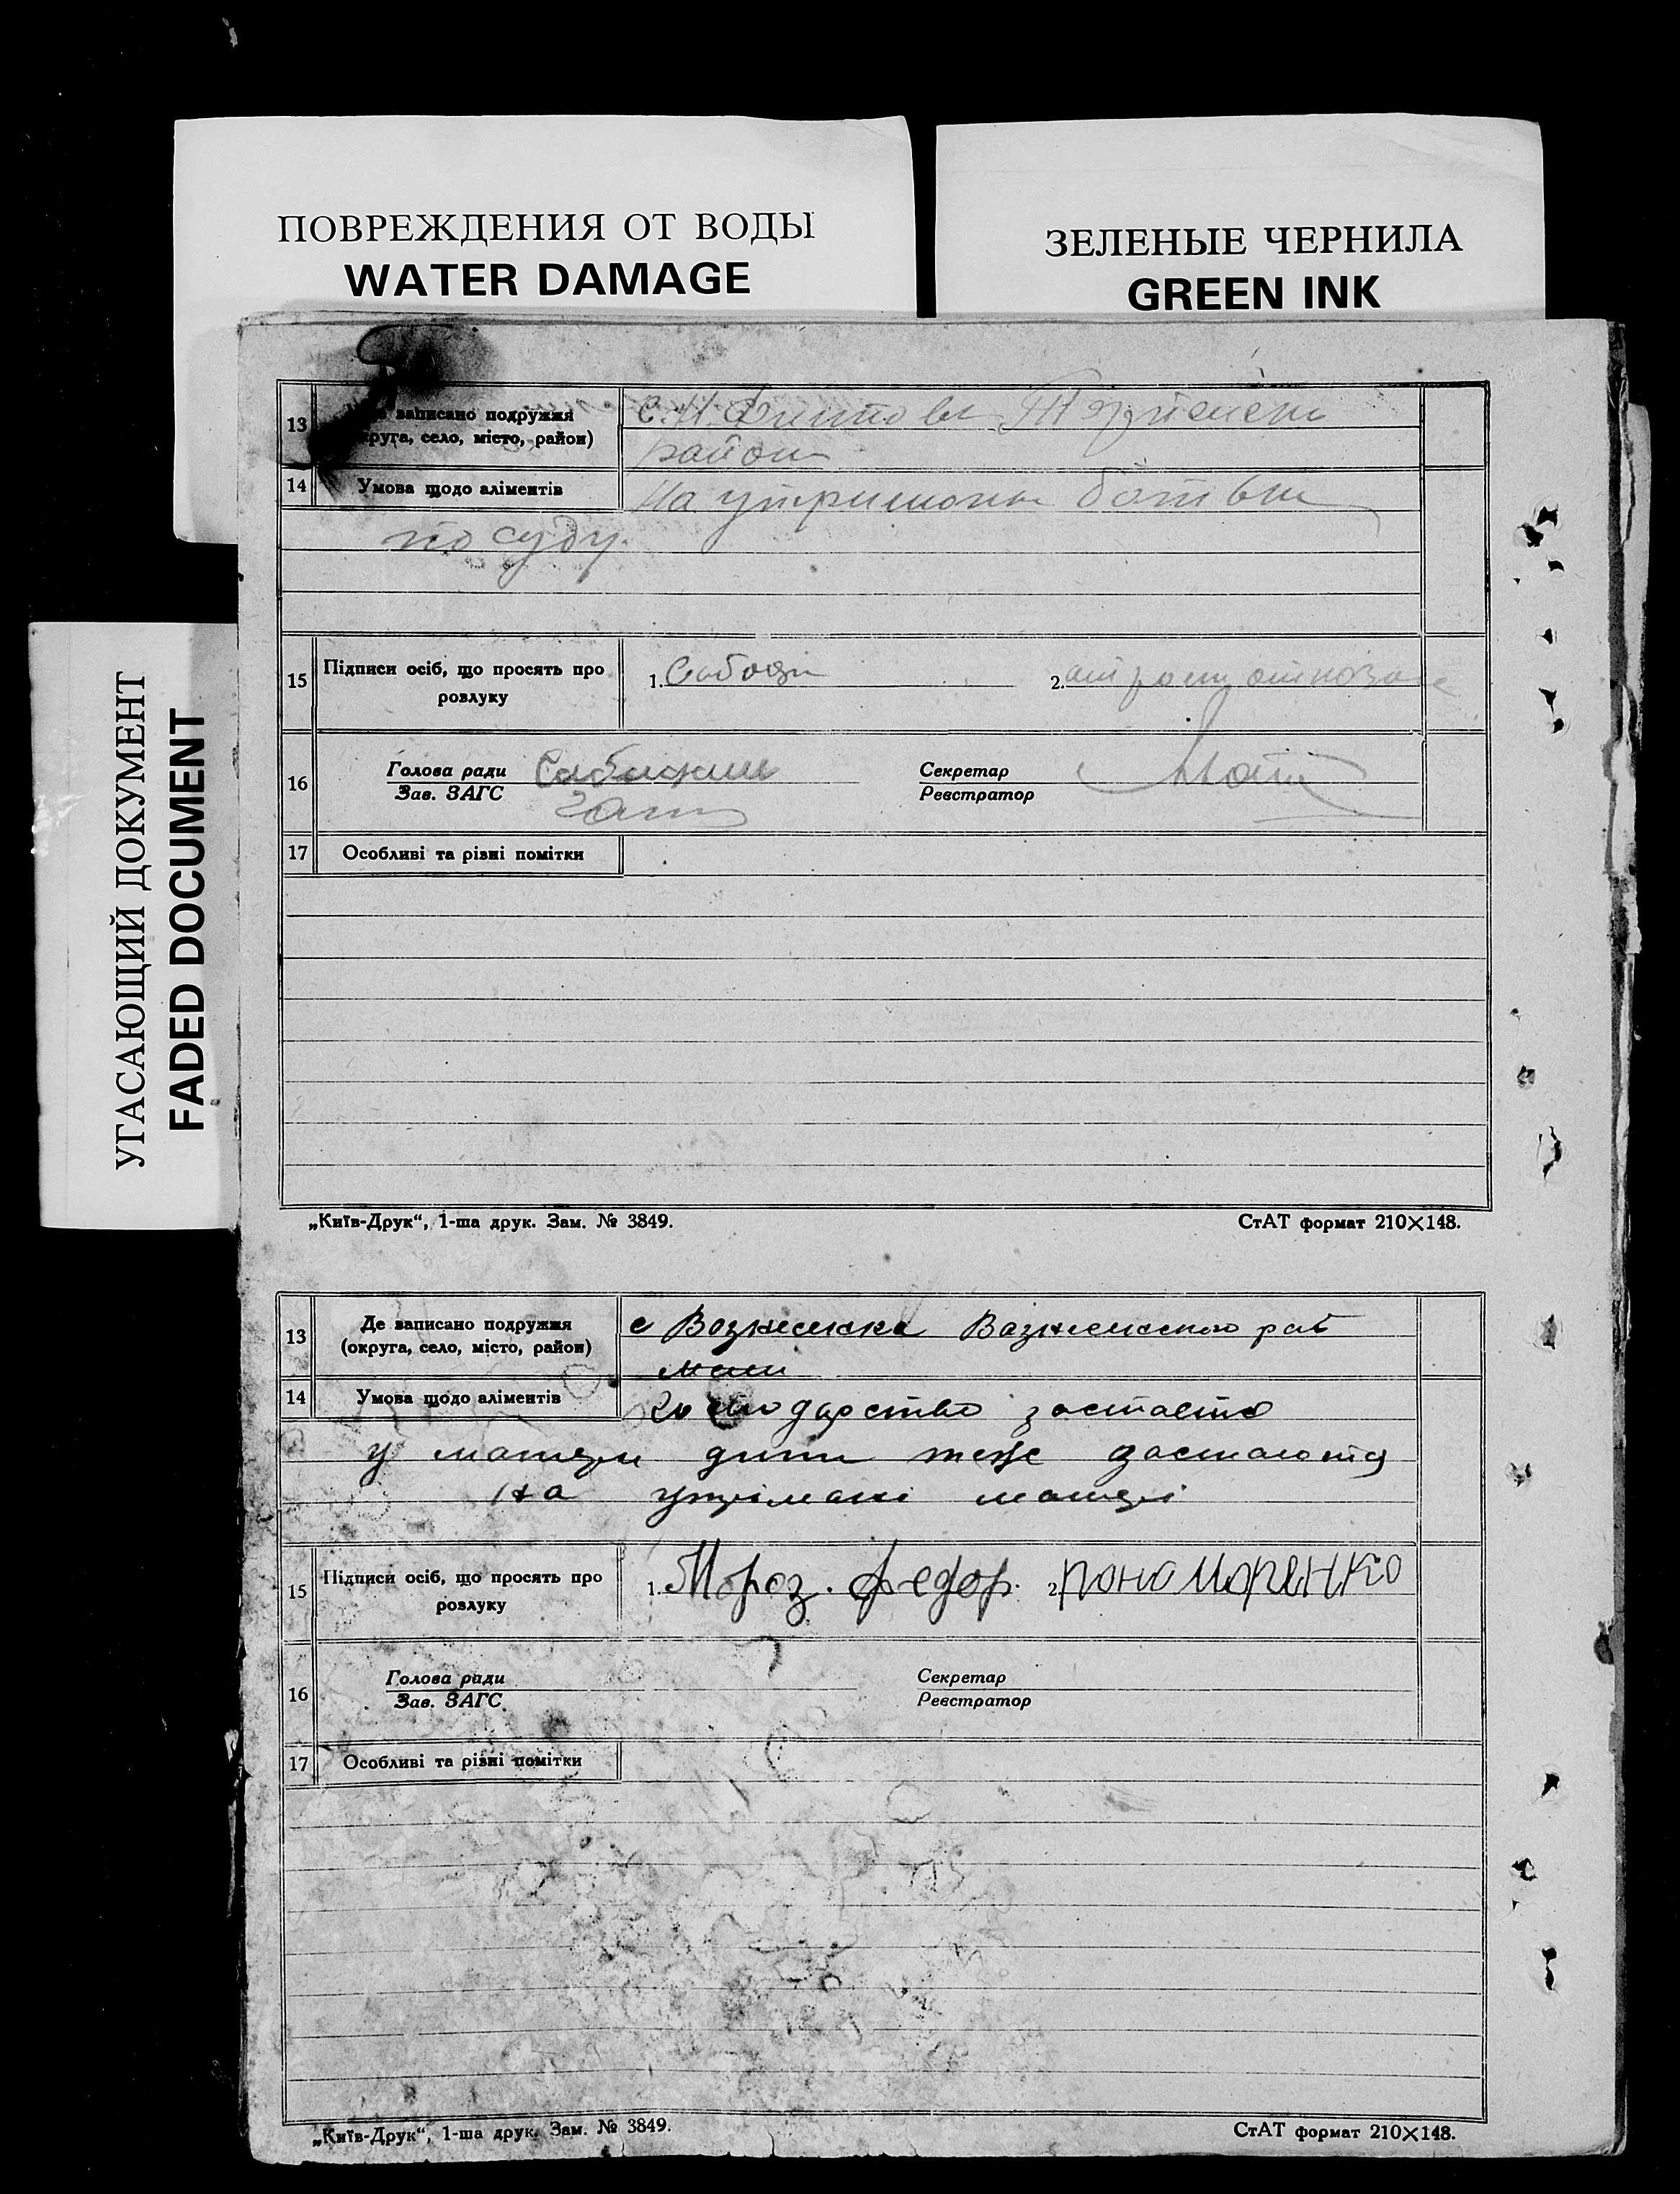 ПОВРЕЖДЕНИЯ ОТ ВОДЫ
WATER DAMAGE
ЗЕЛЕНЫЕ ЧЕРНИЛА
GREEN INK
УГАСАЮЩИЙ ДОКУМЕНТ
FADED DOCUMENT
13
записано подружжя
село, місто, район)
С. Н.
район
14
Умова щодо аліментів
На
по суду.
15
Підписи осіб, що просять про
розлуку
1.
2.
16
Голова ради
Зав. ЗАГС
Секретар
Реєстратор
17
Особливі та різні помітки
„Київ-Друк“, 1-ша друк. Зам. № 3849.
СтАТ формат 210×148.
13
Де записано подружжя
(округа, село, місто, район)
с Вознесенка Вознесенского
14
Умова щодо аліментів
господарство зостается
у матери дити теж застаются
на утрімані матері
15
Підписи осіб, що просять про
розлуку
1. Мороз. федор. 2. пономоренко
16
Голова ради
Зав. ЗАГС
Секретар
Реєстратор
17
Особливі та різні помітки
„Київ-Друк“, 1-ша друк. Зам. № 3849.
СтАТ формат 210×148.